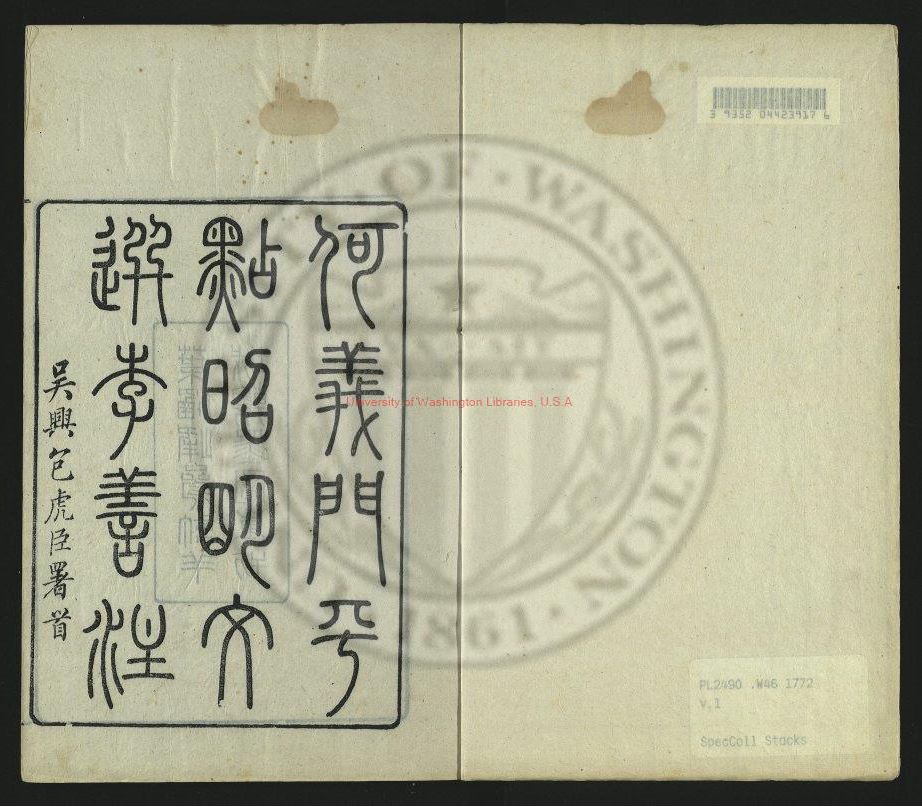 何義門平
點昭明文
選李善注
吳興包虎臣署首
3 9352 04423917 6
UNIVERSITY OF WASHINGTON
1861
University of Washington Libraries, U.S.A
PL2490 .W46 1772
v.1
SpecColl Stacks